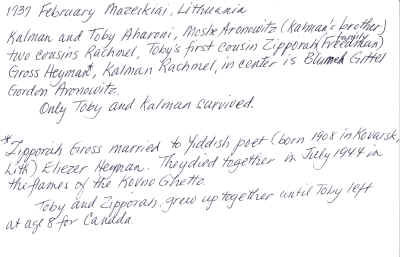 1937 February Mazeikiai, Lithuania
Kalman and Toby Aharoni, Moshe Aronowitz (Kalman's brother)
two cousins Rachmel, Toby's first cousin Zipporah (Freedman) family
Gross Heyman*, Kalman Rachmel, in center is Gittel
Gordon Aronowitz.
Only Toby and Kalman survived.
*Zipporah Gross married to Yiddish poet (born 1908 in Kovarsk,
Lith) Eliezer Heyman. They died together in July 1944 in
the flames of the Kovno Ghetto.
Toby and Zipporah grew up together until Toby left
at age 8 for Canada.